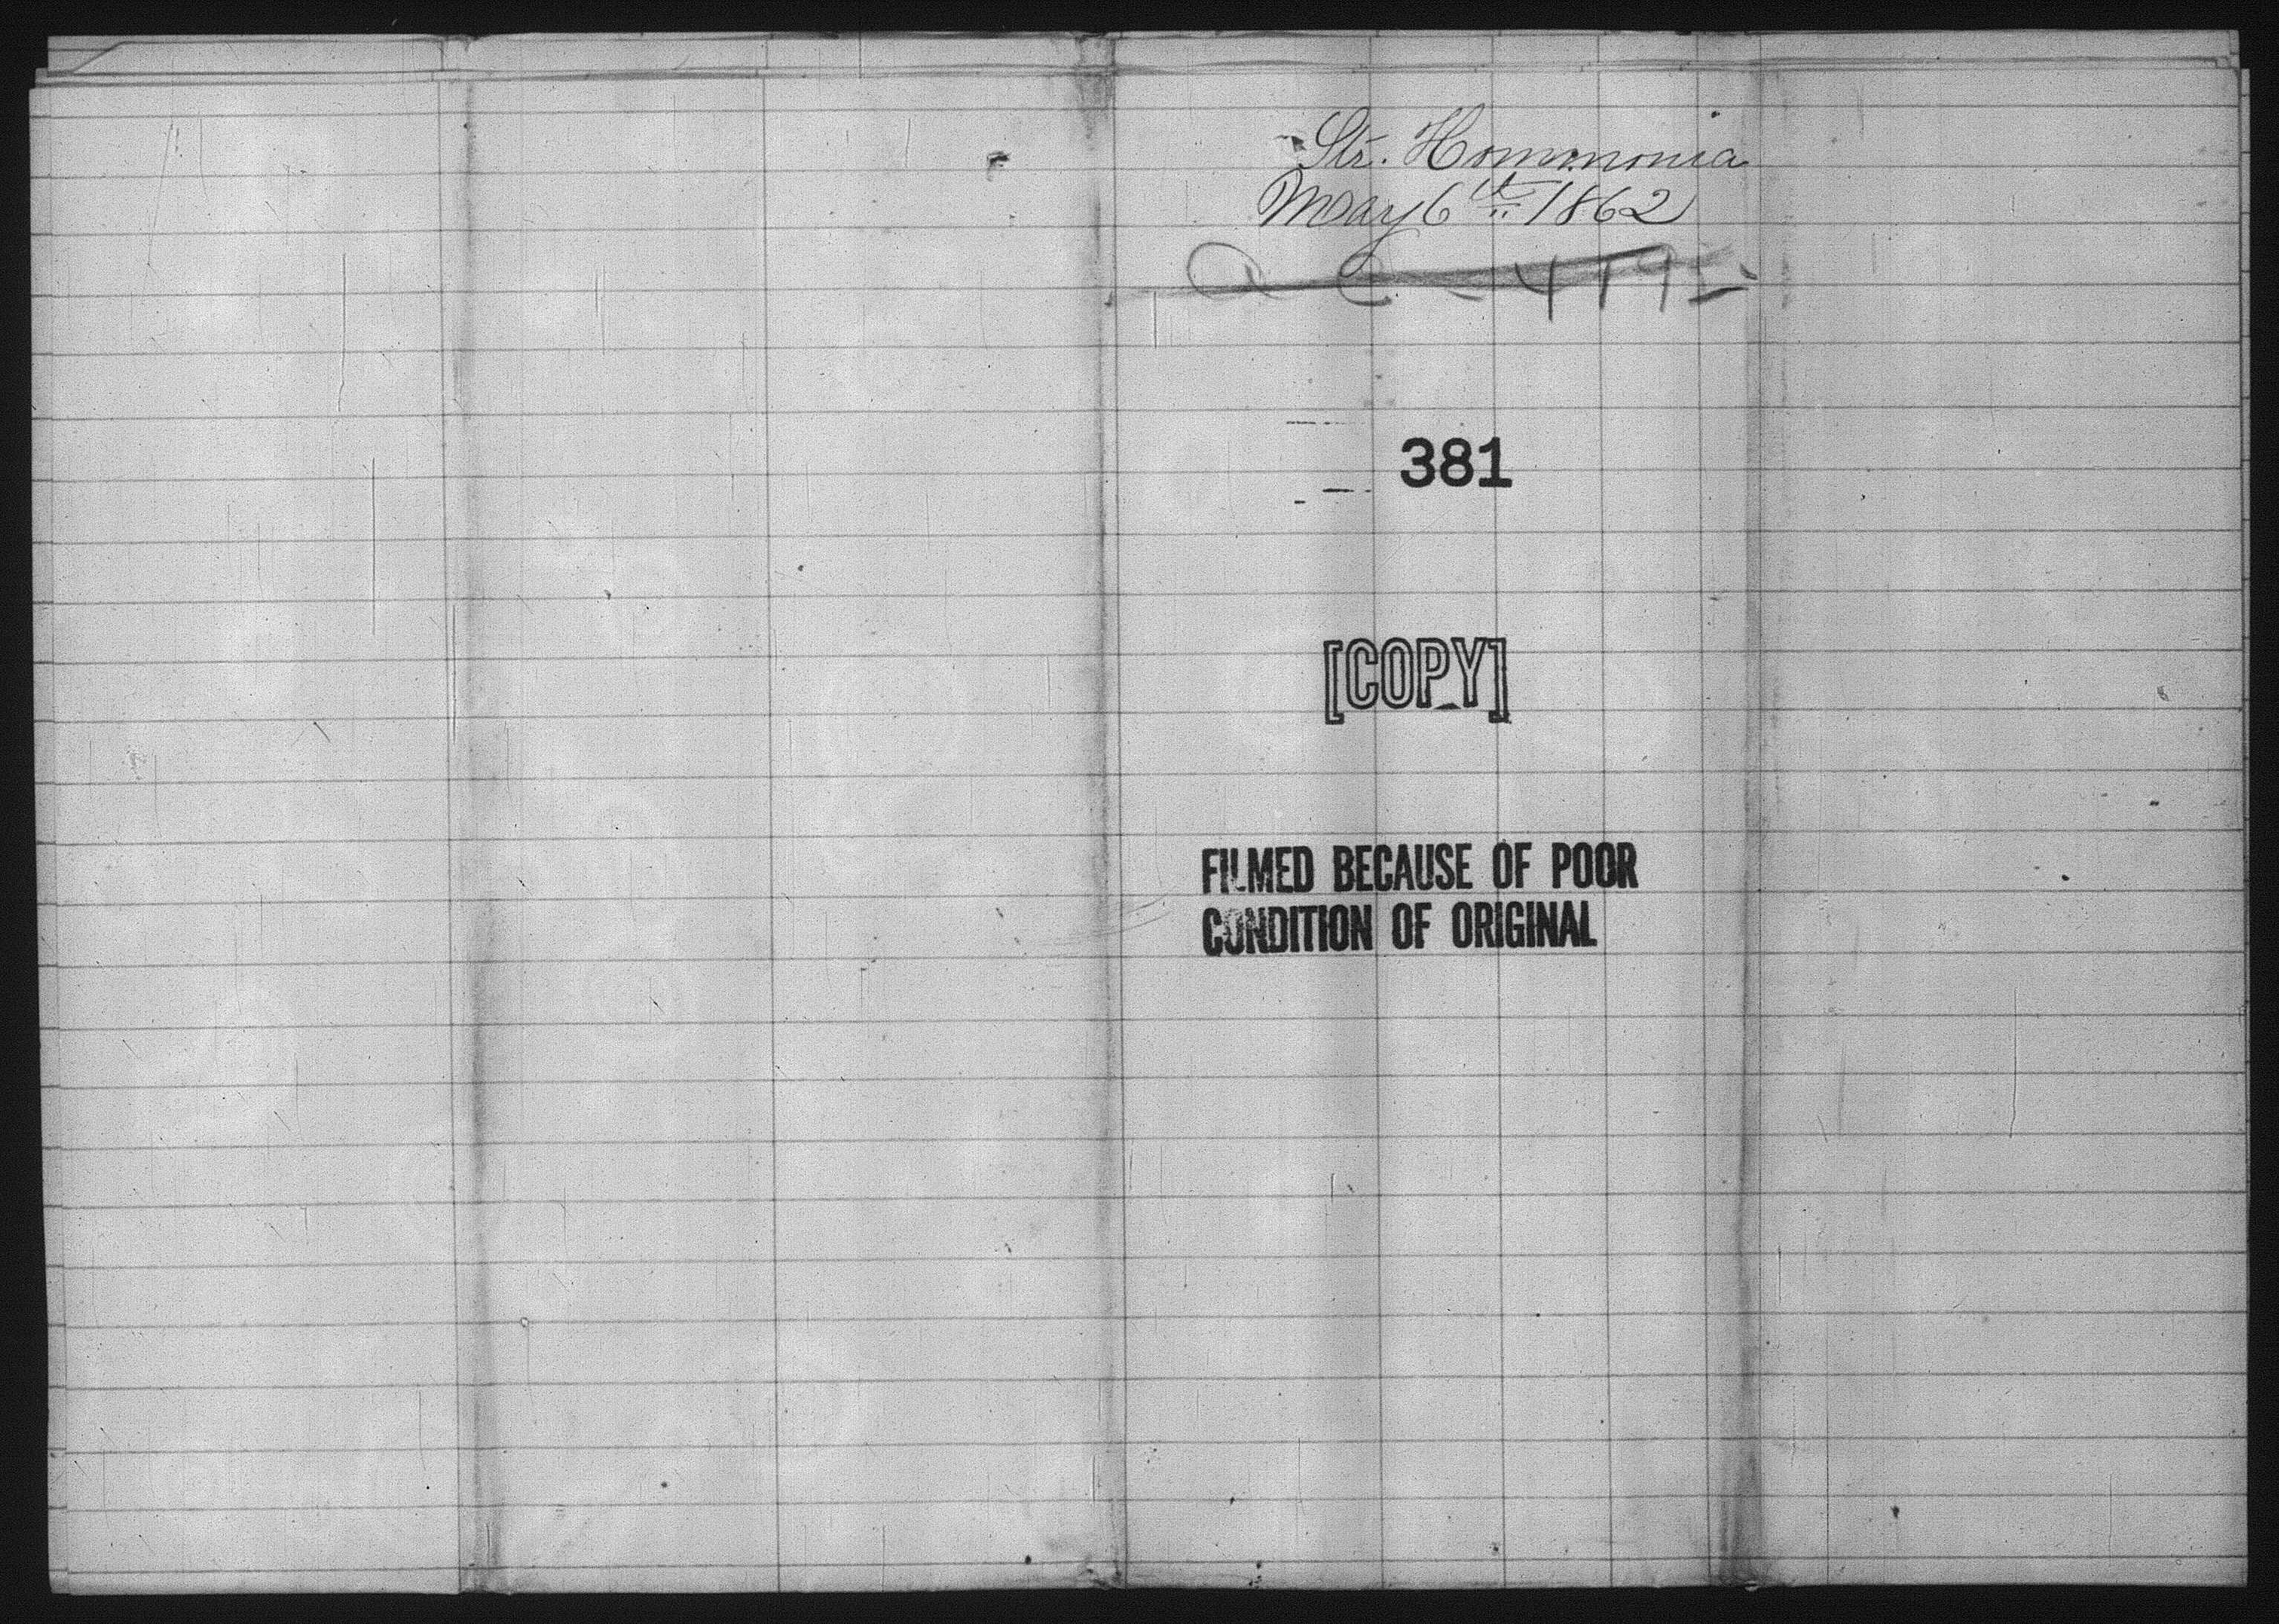 Str. Hommonia
May 6th 1862
381
[COPY]
FILMED BECAUSE OF POOR
CONDITION OF ORIGINAL